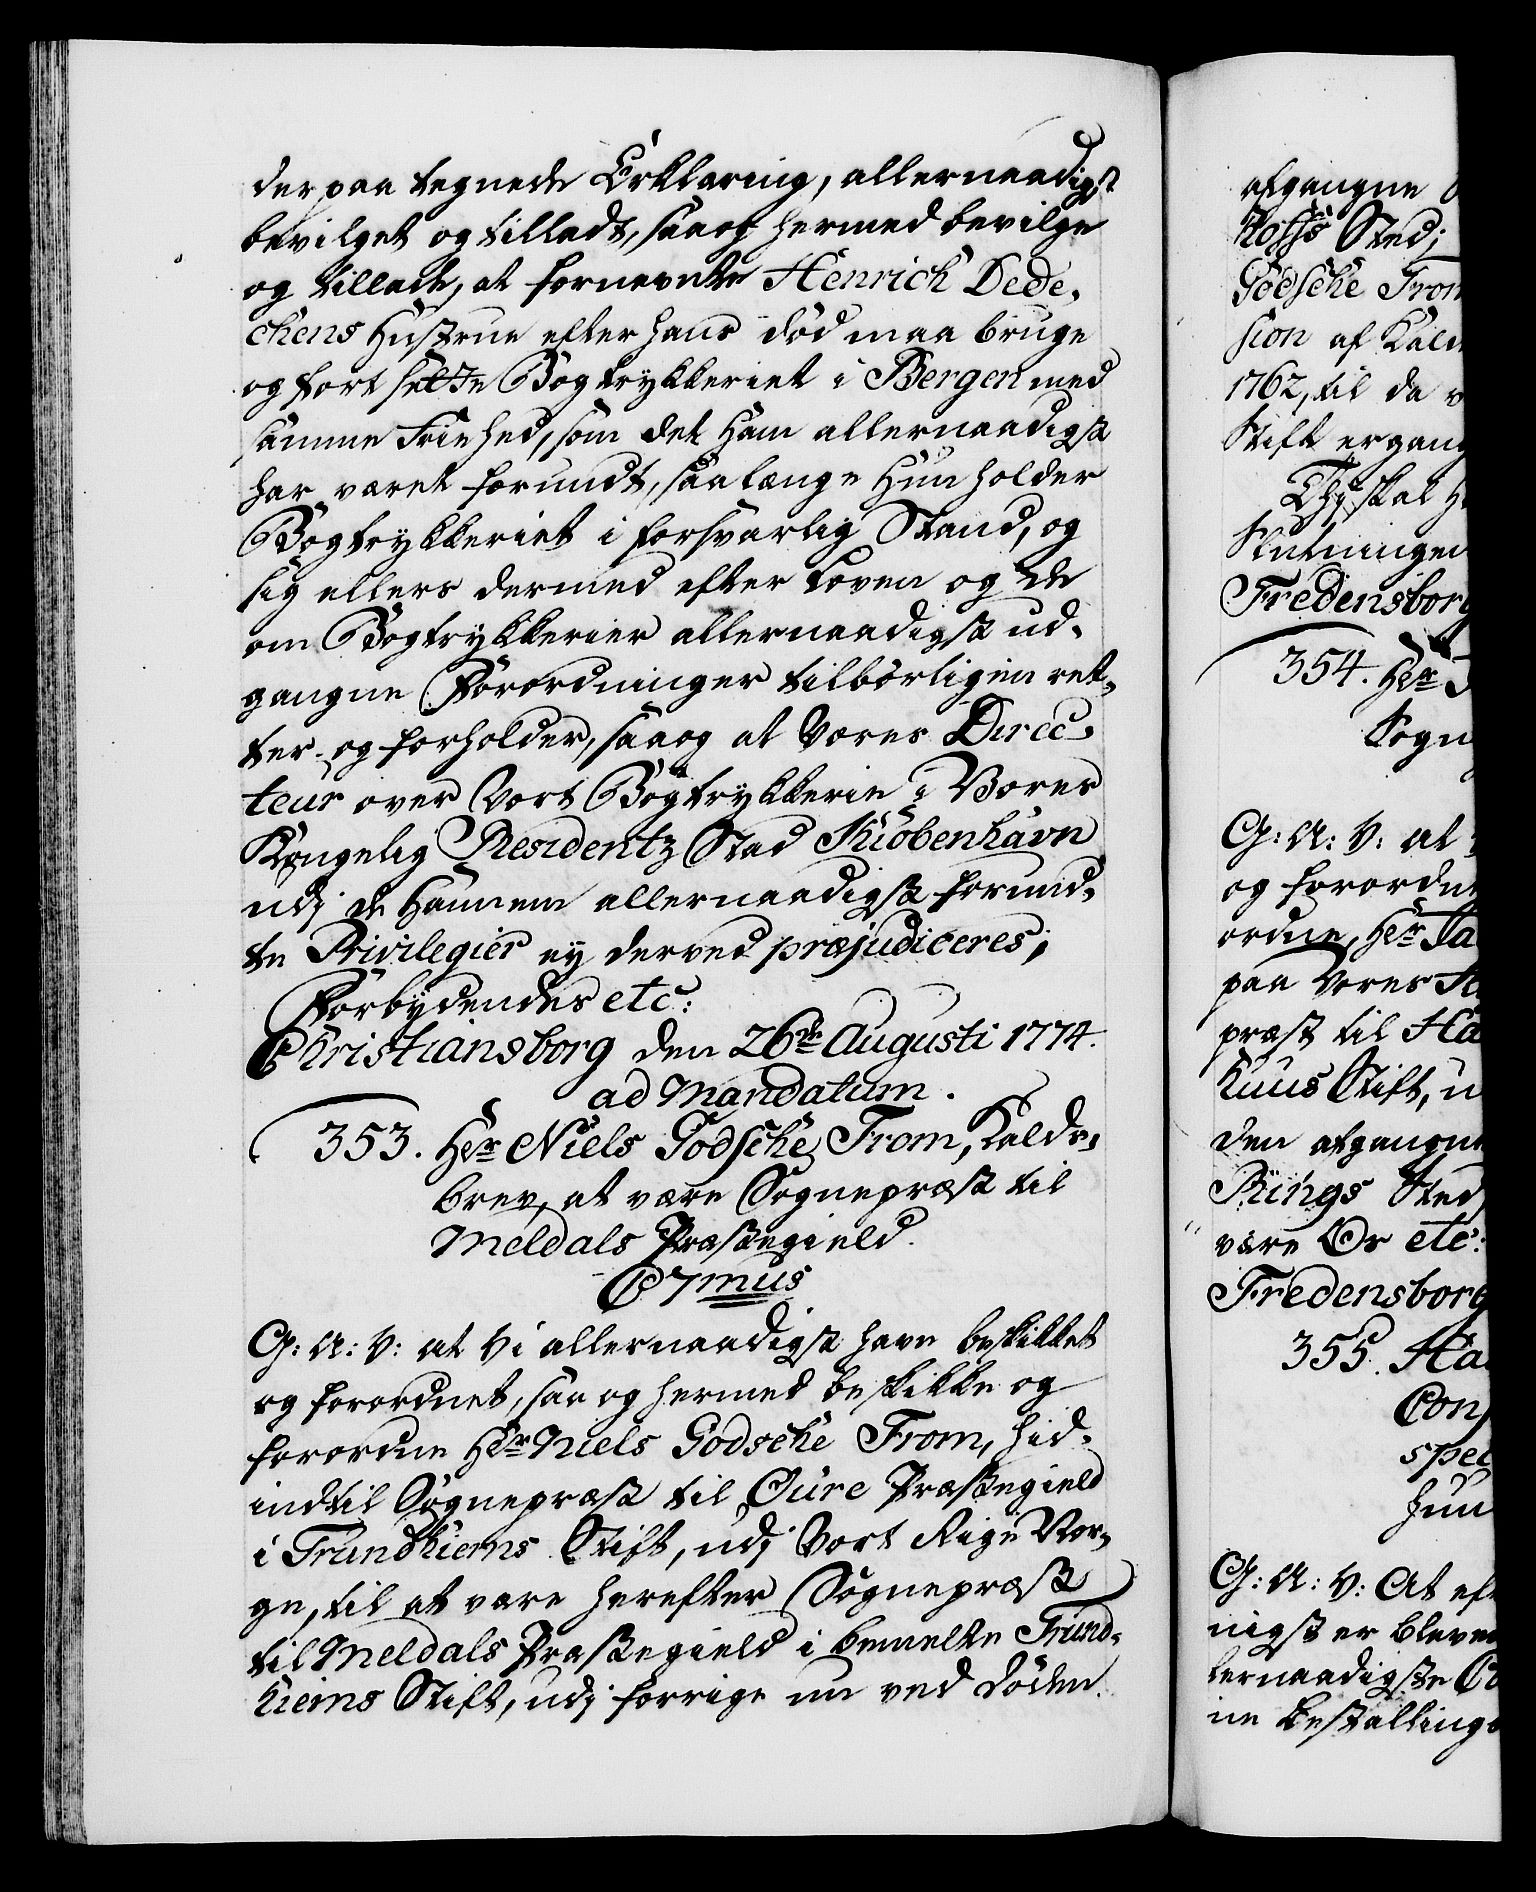 der paa tegnede Erklæring, allernaadigst
bevilget og tilladt, saa og hermed bevilge
og tillade, at fornevnte Henrich Dede-
chens Hustrue efter hans død maa bruge
og fortsette Bogtrykkeriet i Bergen med
samme Friehed, som det ham allernaadigst
har været forundt, saa længe Hun holder
Bogtrykkeriet i forsvarlig Stand, og
sig ellers dermed efter Loven og de
om Bogtrykkerier allernaadigst ud-
gangne Forordninger tilbørligen ret-
ter og forholder, saa og at Vores Direc-
teur over Vort Bogtrykkerie i Vores
Kongelig Residentz Stad Kiøbenhavn
udj de Hannem allernaadigst forund-
te Privilegier ey derved præjudiceres;
Forbydendes etc:
Christiansborg den 26de Augusti 1774.
ad Mandatum.
353. Hr Niels Godsche From, Kalds-
brev, at være Sognepræst til
Meldals Præstegield.
C 7mus
G: A: V: at Vi allernaadigst have beskikket
og forordnet, saa og hermed beskikke og
forordne Hr Niels Godsche From, hid-
indtil Sognepræst til Oure Præstegield
i Trundhiems Stift, udj Vort Rige Nor-
ge, til at være herefter Sognepræst
til Meldals Præstegield i bemelte Trund-
hiems Stift, udj forrige nu ved Døden
afgangne
Hoffs Sted;
Godsche From
sion af Kald
1762, til da
Stift ergang
Thj skal
Slutningen
Fredensborg
354. Hr
Sogn
G: A: V: at
og forordne
ordne, Hr Ja
paa Vores
præst til Ha
Kuus Stift, u
den afgangne
Rings Sted
være Or etc:
Fredensborg
355. Ha
Con
spec
huu
G: A: V: At eft
nigst er bleven
lernaadigste
ne Bestalling